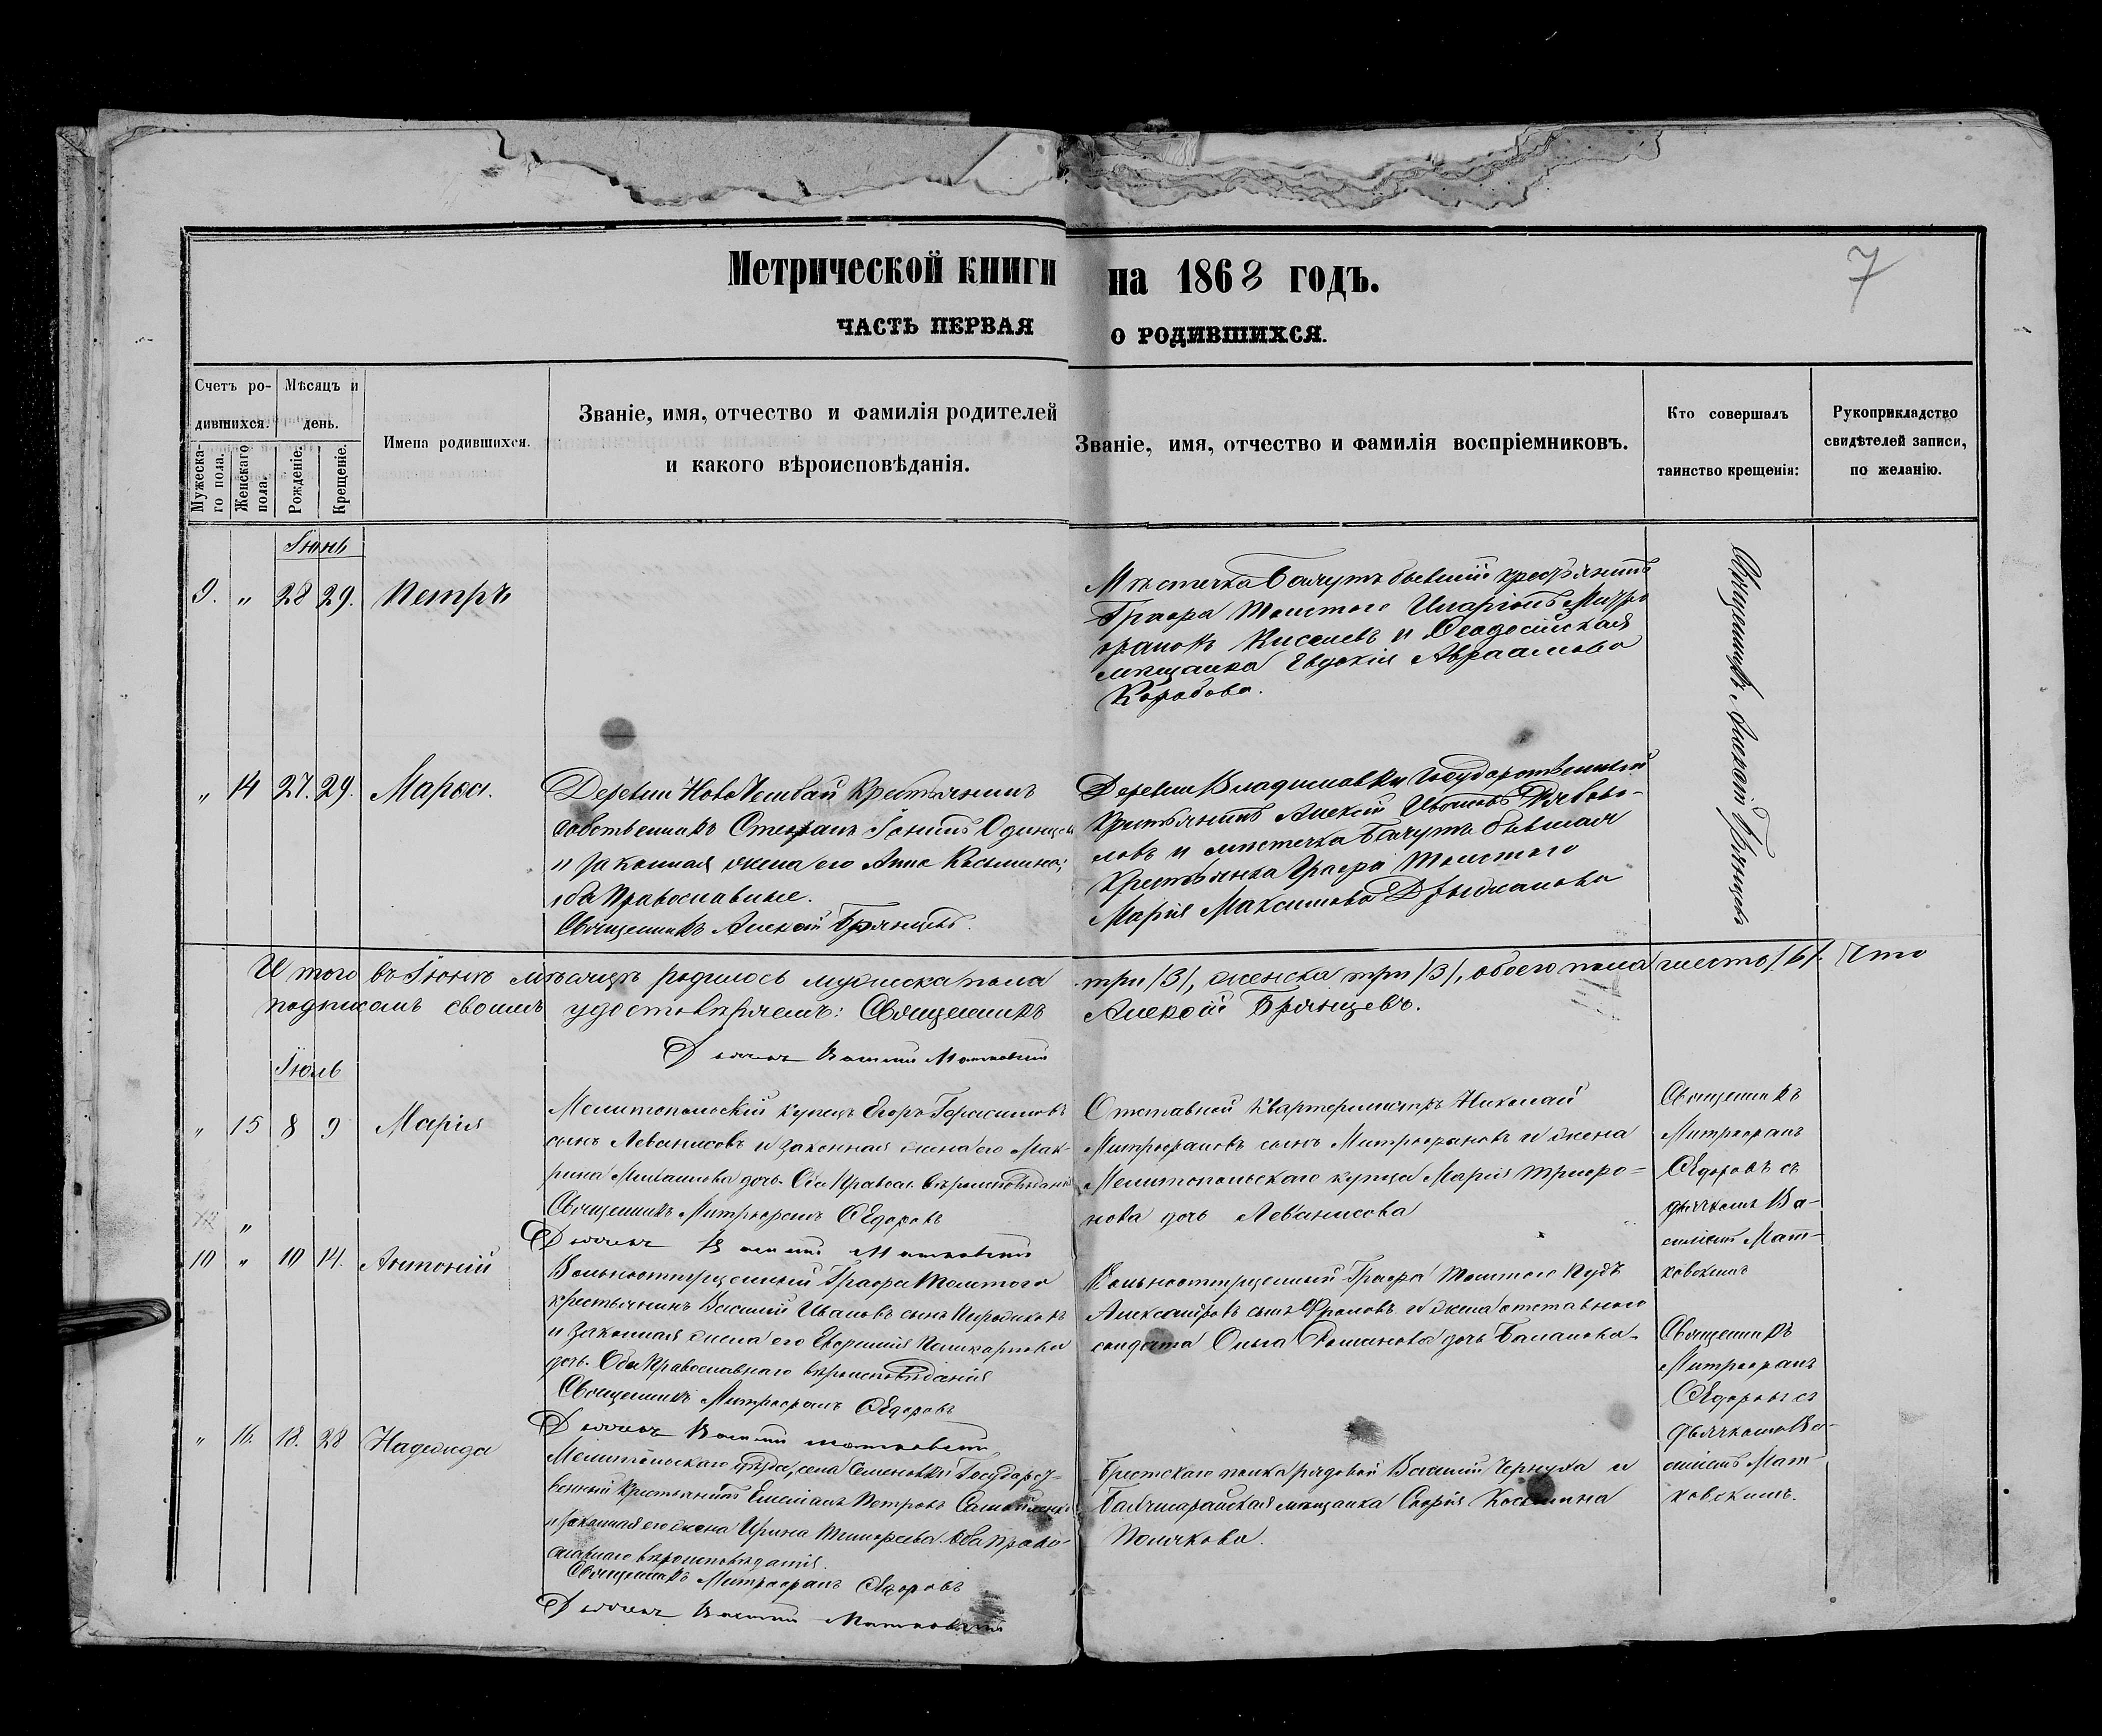 Метрической книги на 1868 годъ.
7
ЧАСТЬ ПЕРВАЯ О РОДИВШИХСЯ.
Счетъ ро-
дившихся.
Мужеска-
го пола.
Женскаго
пола.
Мѣсяцъ и
день.
Рожденіе.
Крещеніе.
Имена родившихся.
Званіе, имя, отчество и фамилія родителей
и какого вѣроисповѣданія.
Званіе, имя, отчество и фамилія воспріемниковъ.
Кто совершалъ
таинство крещенія:
Рукоприкладство
свидѣтелей записи,
по желанію.
Іюнь
9. " 28 29. Петръ
Мѣстечка бывшій крестьянинъ
Графа Толстого Иларіонъ Митро
фановъ Киселевъ и Ѳеодосійская
мѣщанка Евдокія Авраамова
Коробова.
Священникъ Алексій Брянцевъ
" 14 27. 29. Марѳа.
Деревни Крестьянинъ
собственникъ Стефанъ
и законная жена его Анна Косьмина;
оба Православные.
Священникъ Алексій Брянцевъ.
Деревни Владиславки Государственный
Крестьянинъ Алексій Ивановъ
и мѣстечка бывшая
Крестьянка Графа Толстого
Марія Максимова
Итого въ Іюнѣ мѣсяцѣ родилось мужеска пола три /3/, женска три /3/, обоего пола шесть /6/. Что
подписомъ своимъ удостовѣряемъ: Священникъ Алексій Брянцевъ.
Дьячекъ Василій Матковскій
Іюль
" 15 8 9 Марія
Мелитопольскій купецъ Егоръ Герасимовъ
сынъ Леванисовъ и законная жена его Мак-
рина дочь. Оба Правосл. вѣроисповѣданія
Священникъ Митрофанъ Ѳедоровъ
Дьячекъ Василій Матковскій
Отставной Квартермистръ Николай
Митрофановъ сынъ Митрофановъ и жена
Мелитопольскаго купца Марія Трифо-
нова дочь Леванисова
Священникъ
Митрофанъ
Ѳедоровъ съ
дьячкомъ Ва-
силіемъ Мат-
ковскимъ
"
10 " 10 14. Антоній
Вольноотпущенный Графа Толстого
крестьянинъ Василій Ивановъ сынъ
и законная жена его Евфимія Поликарпова
дочь. Оба Православнаго вѣроисповѣданія
Священникъ Митрофанъ Ѳедоровъ
Дьячекъ Василій Матковскій
Вольноотпущенный Графа Толстого
Александровъ сынъ Фроловъ и жена отставного
солдата Ольга Романова дочь Баланова
Священникъ
Митрофанъ
Ѳедоровъ съ
дьячкомъ Ва-
силіемъ Мат-
ковскимъ.
" 16. 18. 28 Надежда
Мелитопольскаго уѣзда, села Семеновки Государст-
венный Крестьянинъ Емеліанъ Петровъ
и законная его жена Ирина Тимофеева. Оба право-
славнаго вѣроисповѣданія.
Священникъ Митрофанъ Ѳедоровъ
Дьячекъ Василій Матковскій
Брестскаго полка рядовой Василій Чернуха и
мѣщанка Софія Косьмина
Полякова.